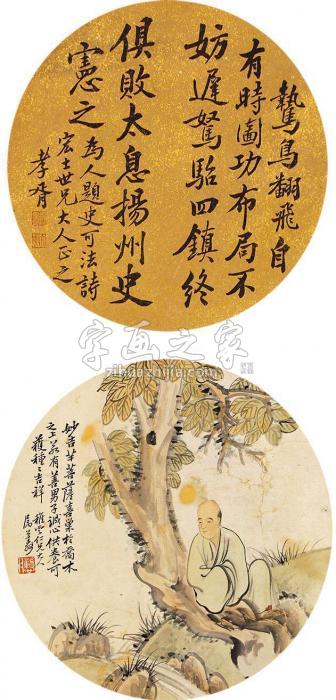 鷙鳥翻飛自
有時圖功布局不
妨遲駑駘四鎮終
俱敗太息揚州史
憲之
為人題史可法詩
宏士世兄大人正之
孝胥
字画之家
zihuazhijia.com
妙吉羊菩薩喜巢於喬木
之上若有善男子誠心供養可
獲種々吉祥
仁兄大